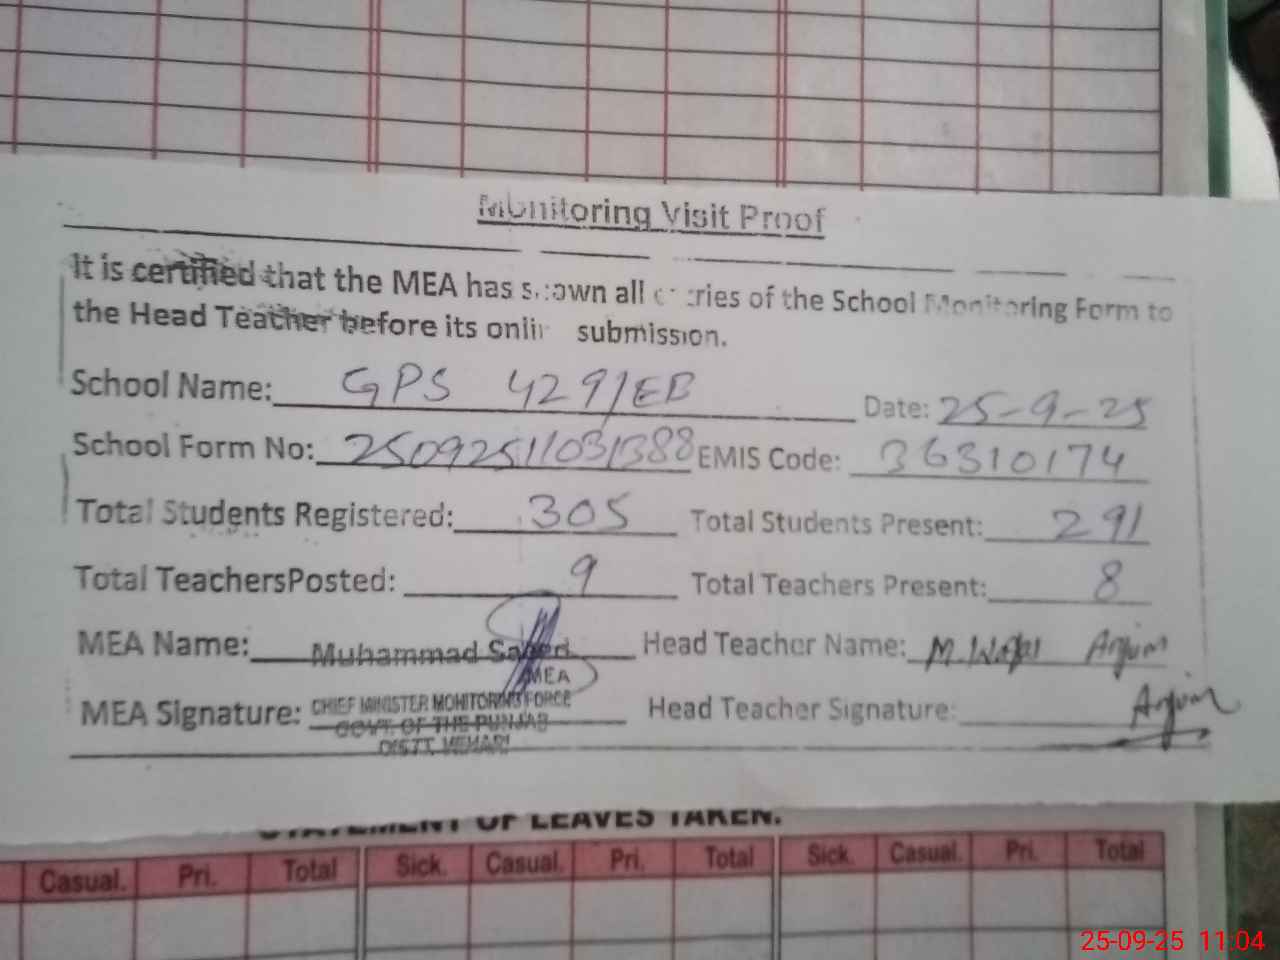 Monitoring Visit Proof
It is certified that the MEA has shown all entries of the School Monitoring Form to
the Head Teacher before its onlin submission.
School Name: GPS 429/EB Date: 25-9-25
School Form No: 25092511031388 EMIS Code: 36310174
Total Students Registered: 305 Total Students Present: 291
Total TeachersPosted: 9 Total Teachers Present: 8
MEA Name: Muhammad Saeed Head Teacher Name: M. Anjum
MEA
MEA Signature: CHIEF MINISTER MONITORING FORCE Head Teacher Signature: Anjum
GOVT. OF THE PUNJAB
DISTT. VEHARI
STATEMENT OF LEAVES TAKEN.
Casual. Pri. Total Sick. Casual. Pri. Total Sick. Casual. Pri. Total
25-09-25 11:04